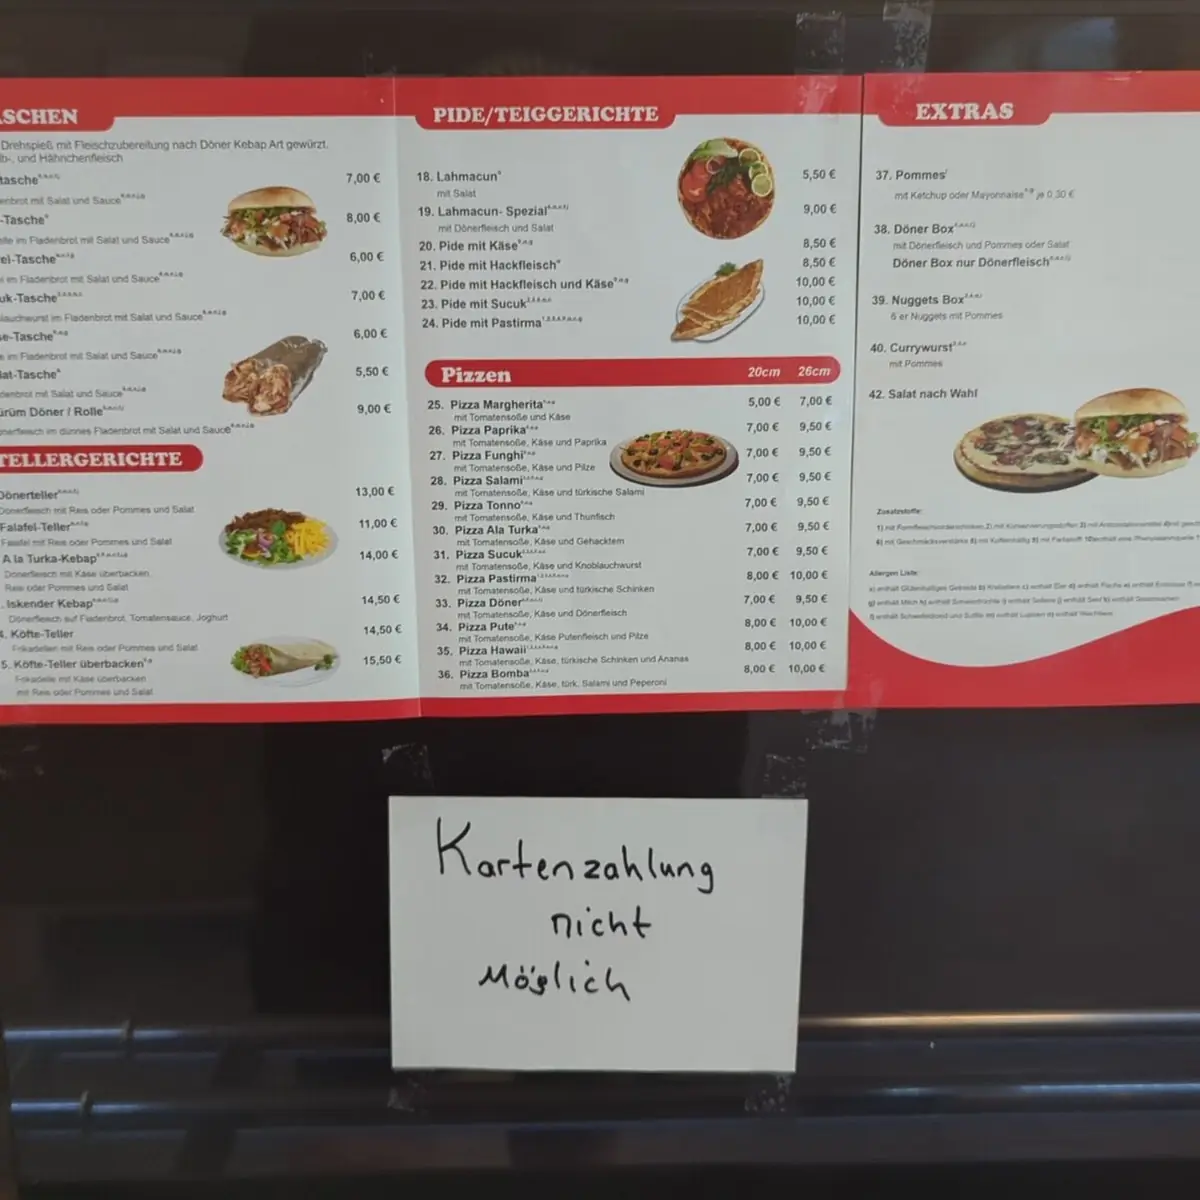 SCHEN
Drehspieß mit Fleischzubereitung nach Döner Kebap Art gewürzt.
b-, und Hähnchenfleisch
tasche 7,00 €
enbrot mit Salat und Sauce
-Tasche 8,00 €
elle im Fladenbrot mit Salat und Sauce
el-Tasche 6,00 €
el im Fladenbrot mit Salat und Sauce
uk-Tasche 7,00 €
lauchwurst im Fladenbrot mit Salat und Sauce
se-Tasche 6,00 €
e im Fladenbrot mit Salat und Sauce
lat-Tasche 5,50 €
denbrot mit Salat und Sauce
ürüm Döner / Rolle 9,00 €
nerfleisch im dünnes Fladenbrot mit Salat und Sauce
TELLERGERICHTE
Dönerteller 13,00 €
Dönerfleisch mit Reis oder Pommes und Salat
Falafel-Teller 11,00 €
Falafel mit Reis oder Pommes und Salat
A la Turka-Kebap 14,00 €
Dönerfleisch mit Käse überbacken,
Reis oder Pommes und Salat
. Iskender Kebap 14,50 €
Dönerfleisch auf Fladenbrot, Tomatensauce, Joghurt
4. Köfte-Teller 14,50 €
Frikadellen mit Reis oder Pommes und Salat
5. Köfte-Teller überbacken 15,50 €
Frikadelle mit Käse überbacken
mit Reis oder Pommes und Salat
PIDE/TEIGGERICHTE
18. Lahmacun 5,50 €
mit Salat
19. Lahmacun- Spezial 9,00 €
mit Dönerfleisch und Salat
20. Pide mit Käse 8,50 €
21. Pide mit Hackfleisch 8,50 €
22. Pide mit Hackfleisch und Käse 10,00 €
23. Pide mit Sucuk 10,00 €
24. Pide mit Pastirma 10,00 €
Pizzen 20cm 26cm
25. Pizza Margherita 5,00 € 7,00 €
mit Tomatensoße und Käse
26. Pizza Paprika 7,00 € 9,50 €
mit Tomatensoße, Käse und Paprika
27. Pizza Funghi 7,00 € 9,50 €
mit Tomatensoße, Käse und Pilze
28. Pizza Salami 7,00 € 9,50 €
mit Tomatensoße, Käse und türkische Salami
29. Pizza Tonno 7,00 € 9,50 €
mit Tomatensoße, Käse und Thunfisch
30. Pizza Ala Turka 7,00 € 9,50 €
mit Tomatensoße, Käse und Gehacktem
31. Pizza Sucuk 7,00 € 9,50 €
mit Tomatensoße, Käse und Knoblauchwurst
32. Pizza Pastirma 8,00 € 10,00 €
mit Tomatensoße, Käse und türkische Schinken
33. Pizza Döner 7,00 € 9,50 €
mit Tomatensoße, Käse und Dönerfleisch
34. Pizza Pute 8,00 € 10,00 €
mit Tomatensoße, Käse Putenfleisch und Pilze
35. Pizza Hawaii 8,00 € 10,00 €
mit Tomatensoße, Käse, türkische Schinken und Ananas
36. Pizza Bomba 8,00 € 10,00 €
mit Tomatensoße, Käse, türk. Salami und Peperoni
EXTRAS
37. Pommes
mit Ketchup oder Mayonnaise je 0,30 €
38. Döner Box
mit Dönerfleisch und Pommes oder Salat
Döner Box nur Dönerfleisch
39. Nuggets Box
6 er Nuggets mit Pommes
40. Currywurst
mit Pommes
42. Salat nach Wahl
Zusatzstoffe:
Allergen Liste:
Kartenzahlung
nicht
Möglich